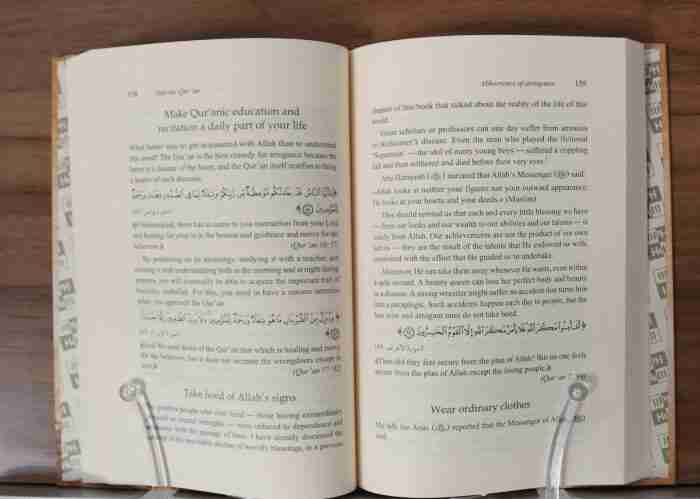 158
Make Qur'anic education and
recitation a daily part of your life
What better way to get acquainted with Allah than to understand
His word? The Qur'an is the best remedy for arrogance because the
latter is a disease of the heart, and the Qur'an itself testifies to being
a healer of such diseases:
﴿يَا أَيُّهَا النَّاسُ قَدْ جَاءَتْكُم مَّوْعِظَةٌ مِّن رَّبِّكُمْ وَشِفَاءٌ لِّمَا فِي الصُّدُورِ وَهُدًى وَرَحْمَةٌ
لِّلْمُؤْمِنِينَ ﴾
﴾O humankind, there has to come to you instruction from your Lord
and healing for what is in the breasts and guidance and mercy for the
believers.﴿
(Qur'an 10: 57)
By pondering on its meanings, studying it with a teacher, and
reciting it with understanding both in the morning and at night during
prayers, you will eventually be able to acquire the important trait of
humility, inshallah. For this, you need to have a sincere intention
when you approach the Qur'an:
﴿وَنُنَزِّلُ مِنَ الْقُرْآنِ مَا هُوَ شِفَاءٌ وَرَحْمَةٌ لِّلْمُؤْمِنِينَ وَلَا يَزِيدُ الظَّالِمِينَ إِلَّا خَسَارًا
﴾
﴾And We send down of the Qur'an that which is healing and mercy
for the believers, but it does not increase the wrongdoers except in
loss.﴿
(Qur'an 17: 82)
Take heed of Allah's signs
people who once lived — those having extraordinary
or mental strengths — were reduced to dependence and
with the passage of time. I have already discussed the
of the inevitable decline of worldly blessings, in a previous
Abhorrence of arrogance
159
chapter of this book that talked about the reality of the life of this
world.
Great scholars or professors can one day suffer from amnesia
or Alzheimer's disease. Even the man who played the fictional
'Superman' — the idol of many young boys — suffered a crippling
fall and then withered and died before their very eyes.
Abu Hurayrah narrated that Allah's Messenger said:
«Allah looks at neither your figures nor your outward appearance;
He looks at your hearts and your deeds.» (Muslim)
This should remind us that each and every little blessing we have
— from our looks and our wealth to our abilities and our talents — is
solely from Allah. Our achievements are not the product of our own
talents — they are the result of the talents that He endowed us with,
combined with the effort that He guided us to undertake.
Moreover, He can take them away whenever He wants, even within
a split second. A beauty queen can lose her perfect body and beauty
to a disease. A strong wrestler might suffer an accident that turns him
into a paraplegic. Such accidents happen each day to people, but the
but the
vain and arrogant must do not take heed.
﴿أَفَأَمِنُوا مَكْرَ اللَّهِ فَلَا يَأْمَنُ مَكْرَ اللَّهِ إِلَّا الْقَوْمُ الْخَاسِرُونَ ﴾
﴾Then did they feel secure from the plan of Allah? But no one feels
secure from the plan of Allah except the losing people.﴿
(Qur'an 7: 99)
Wear ordinary clothes
reported that the Messenger of Allah
said: